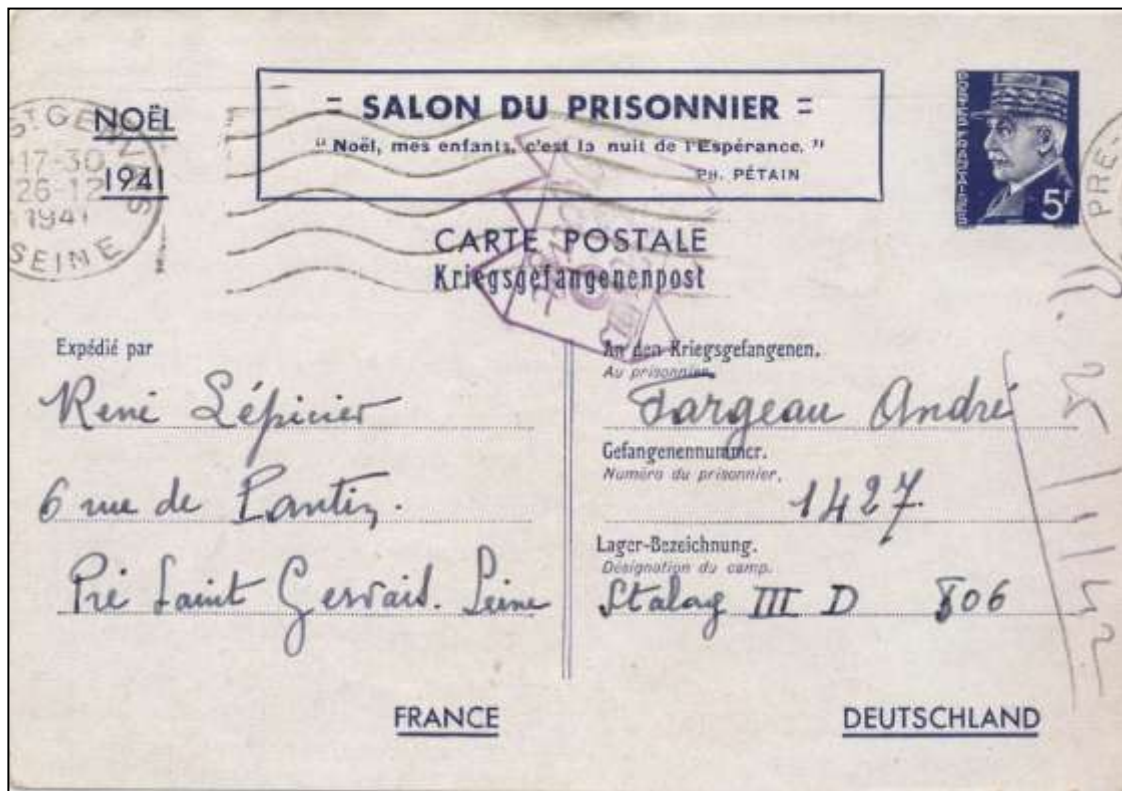 NOËL
1941
= SALON DU PRISONNIER =
" Noël, mes enfants, c'est la nuit de l'Espérance. "
PH. PÉTAIN
5F
ST GERVAIS
17-30
26-12
1941
SEINE
PRE-
CARTE POSTALE
Kriegsgefangenenpost
Expédié par
René Lépicier
6 rue de Pantin.
Pré Saint Gervais. Seine
An den Kriegsgefangenen.
Au prisonnier.
Fargeau André
Gefangenennummer.
Numéro du prisonnier.
1427
Lager-Bezeichnung.
Désignation du camp.
Stalag III D 806
FRANCE
DEUTSCHLAND